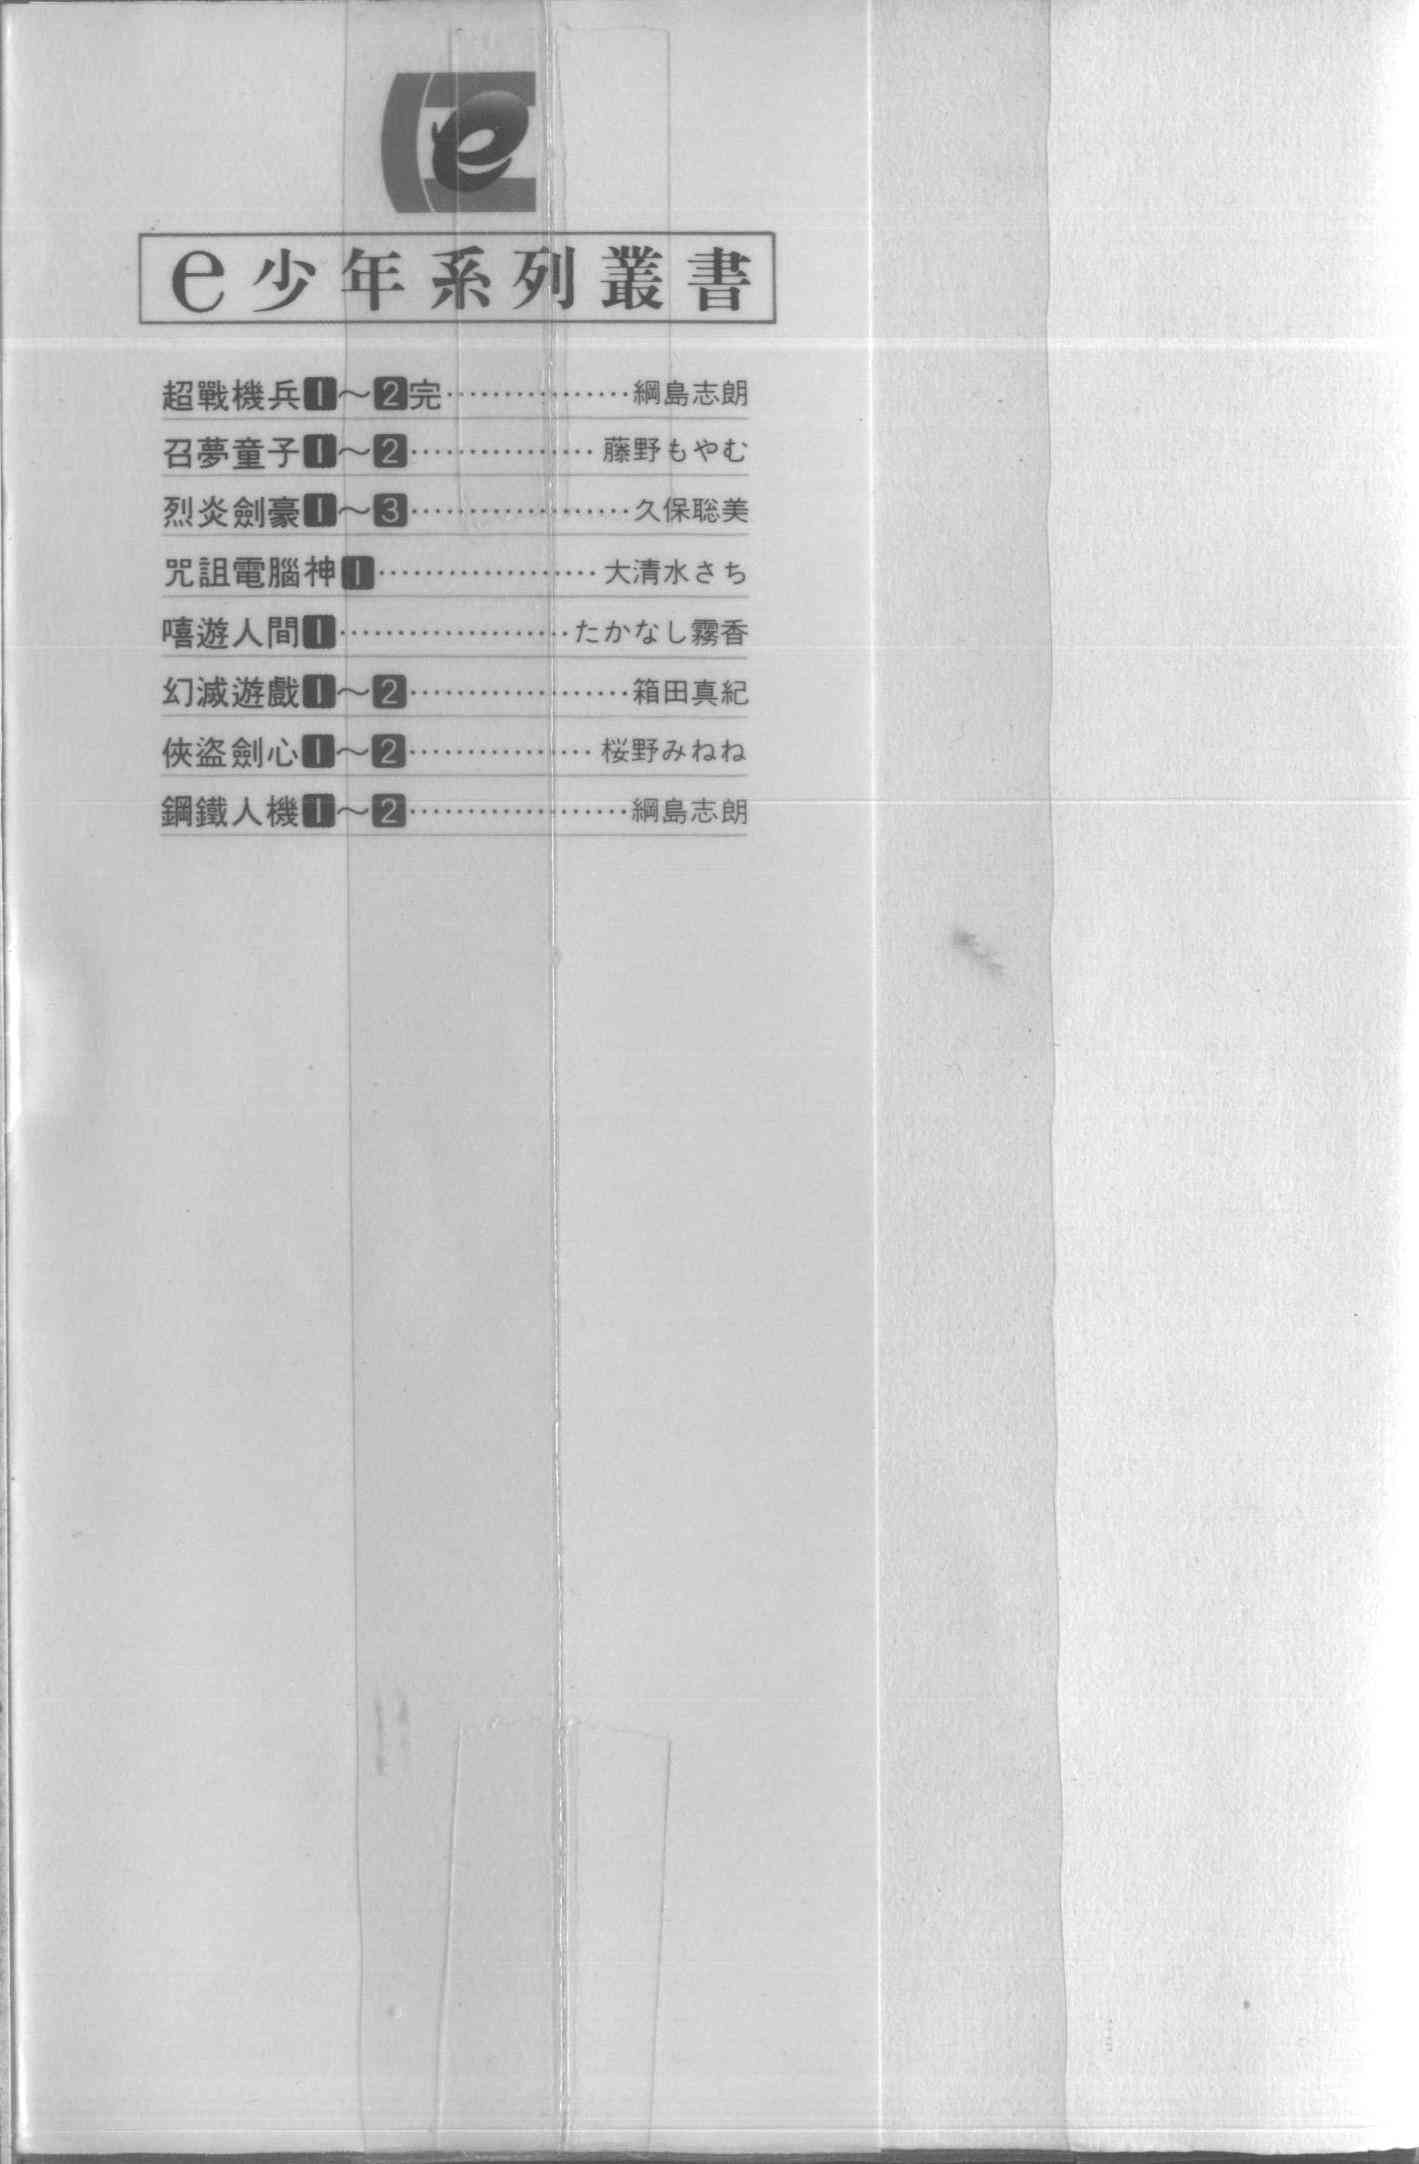 e
e少年系列叢書
超戰機兵1～2完················綱島志朗
召夢童子1～2················藤野もやむ
烈炎劍豪1～3···················久保聡美
咒詛電腦神1···················大清水さち
嘻遊人間1····················たかなし霧香
幻滅遊戲1～2···················箱田真紀
俠盜劍心1～2················桜野みねね
鋼鐵人機1～2···················綱島志朗